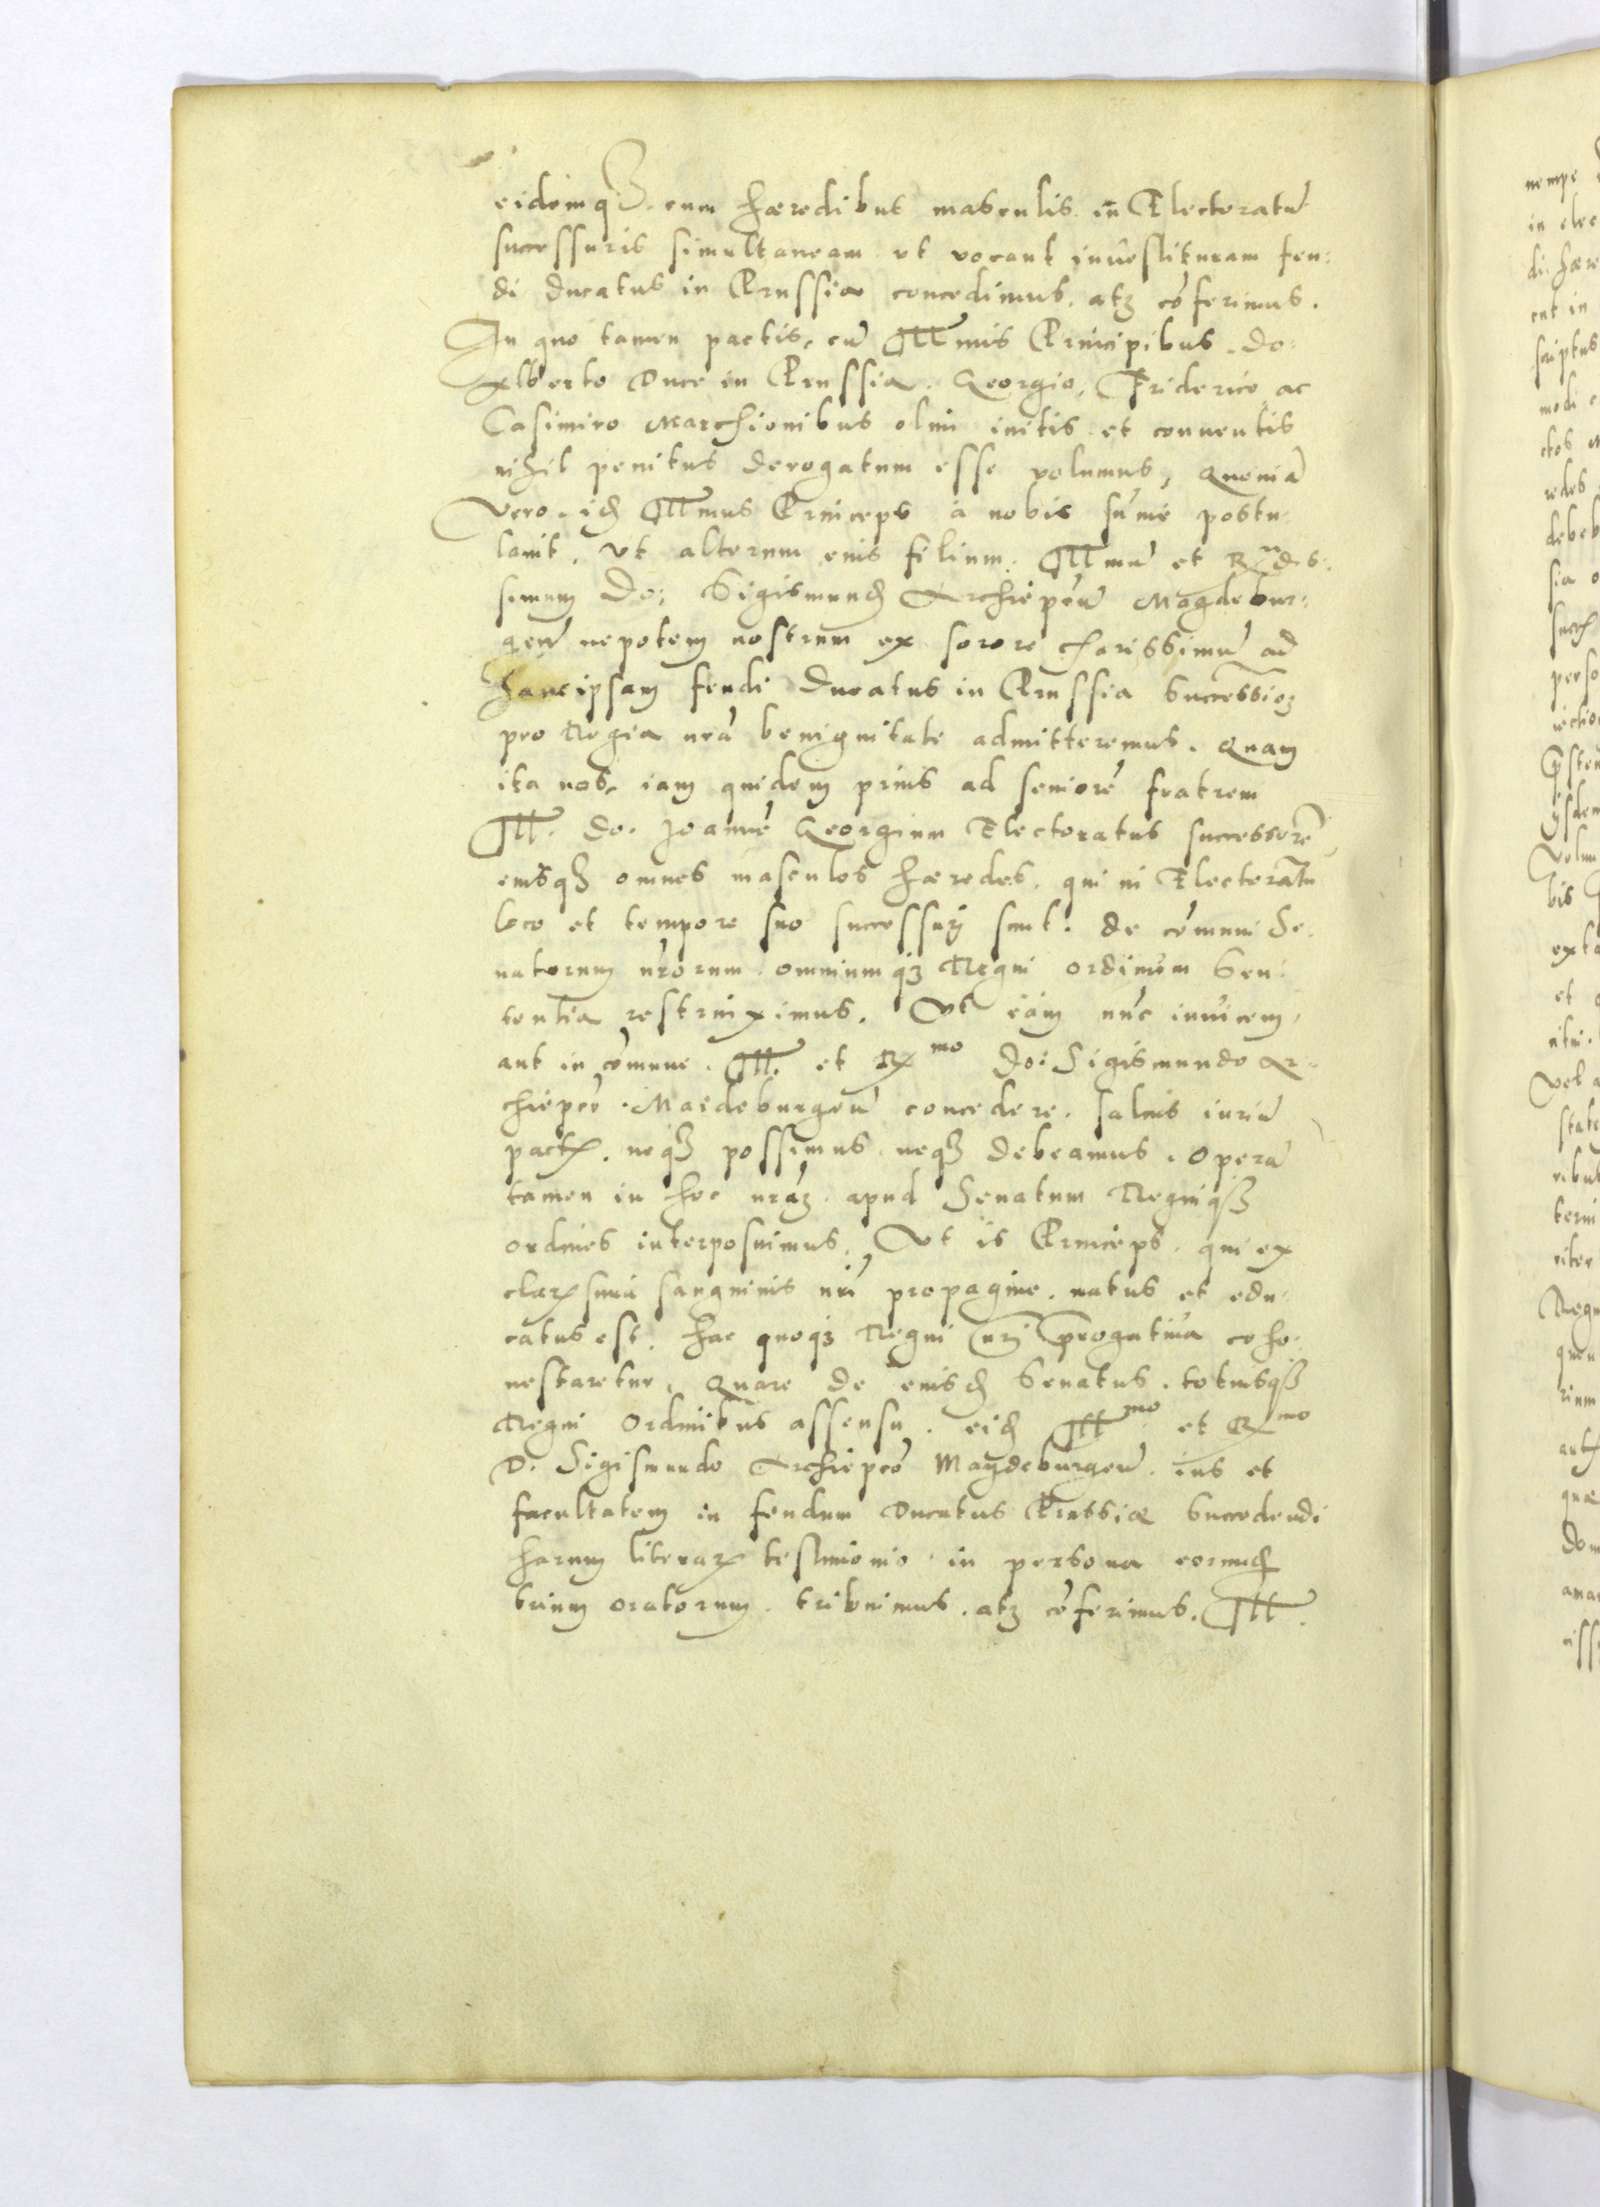 eidemq₃ cum hæredibus masculis in Electoratũ
successuris simultaneam ut vocant inuestituram feu:
di Ducatus in Prussia concedimus, atq₃ cõferimus.
In quo tamen pactis, cũ Illmis Principibus. Do:
Alberto Duce in Prussia. Georgio, Friderico ac
Casimiro Marchionibus olim initis et conuentis
nihil penitus derogatum esse volumus, Quoniã
Vero. idẽ Illmus Princeps à nobis sũme postu:
lauit, Vt alterum eius filium. Illmũ et
simum Do: Sigismundũ Archiepũ Magdebur:
geñ nepotem nostrum ex sorore charissimũ ad
hanc ipsam feudi Ducatus in Prussia Successioẽ
pro Regia nrã benignitate admitteremus. Quam
ita nos, iam quidem prius ad seniorẽ fratrem
Ill. Do. Joannẽ Georgium Electoratus successorẽ
eiusq₃ omnes masculos hæredes. qui in Electoratu
loco et tempore suo successuri sunt. de cõmuni Se:
natorum nrorum. omniumq₃ Regni ordinum Sen:
tentia restrinximus. Vt eãm nũc inuicem,
aut in cõmune. Ill. et Rmo Do: Sigismundo Ar:
chiepõ. Maideburgeñ concedere. saluis iuriũ
pact. neq₃ possimus neq₃ debeamus. Operã
tamen in hoc nrãm. apud Senatum Regniq₃
ordines interposuimus. Vt is Princeps. qui ex
clarssimi sanguinis nri propagine. natus et edu:
catus est. hac quoq₃ Regni nri prrogatiua coho:
nestaretur, Quare de eiusdẽ Senatus. totiusq₃
Regni Ordinibus assensu. eidẽ Illmo et Rmo
D. Sigismundo Archiepõ Magdeburgeñ. ius et
facultatem in feudum Ducatus Prussiæ Succedendi
harum literar testimonio. in persona eorundẽ
trium oratorum. tribuimus. atq₃ cõferimus. Ill.